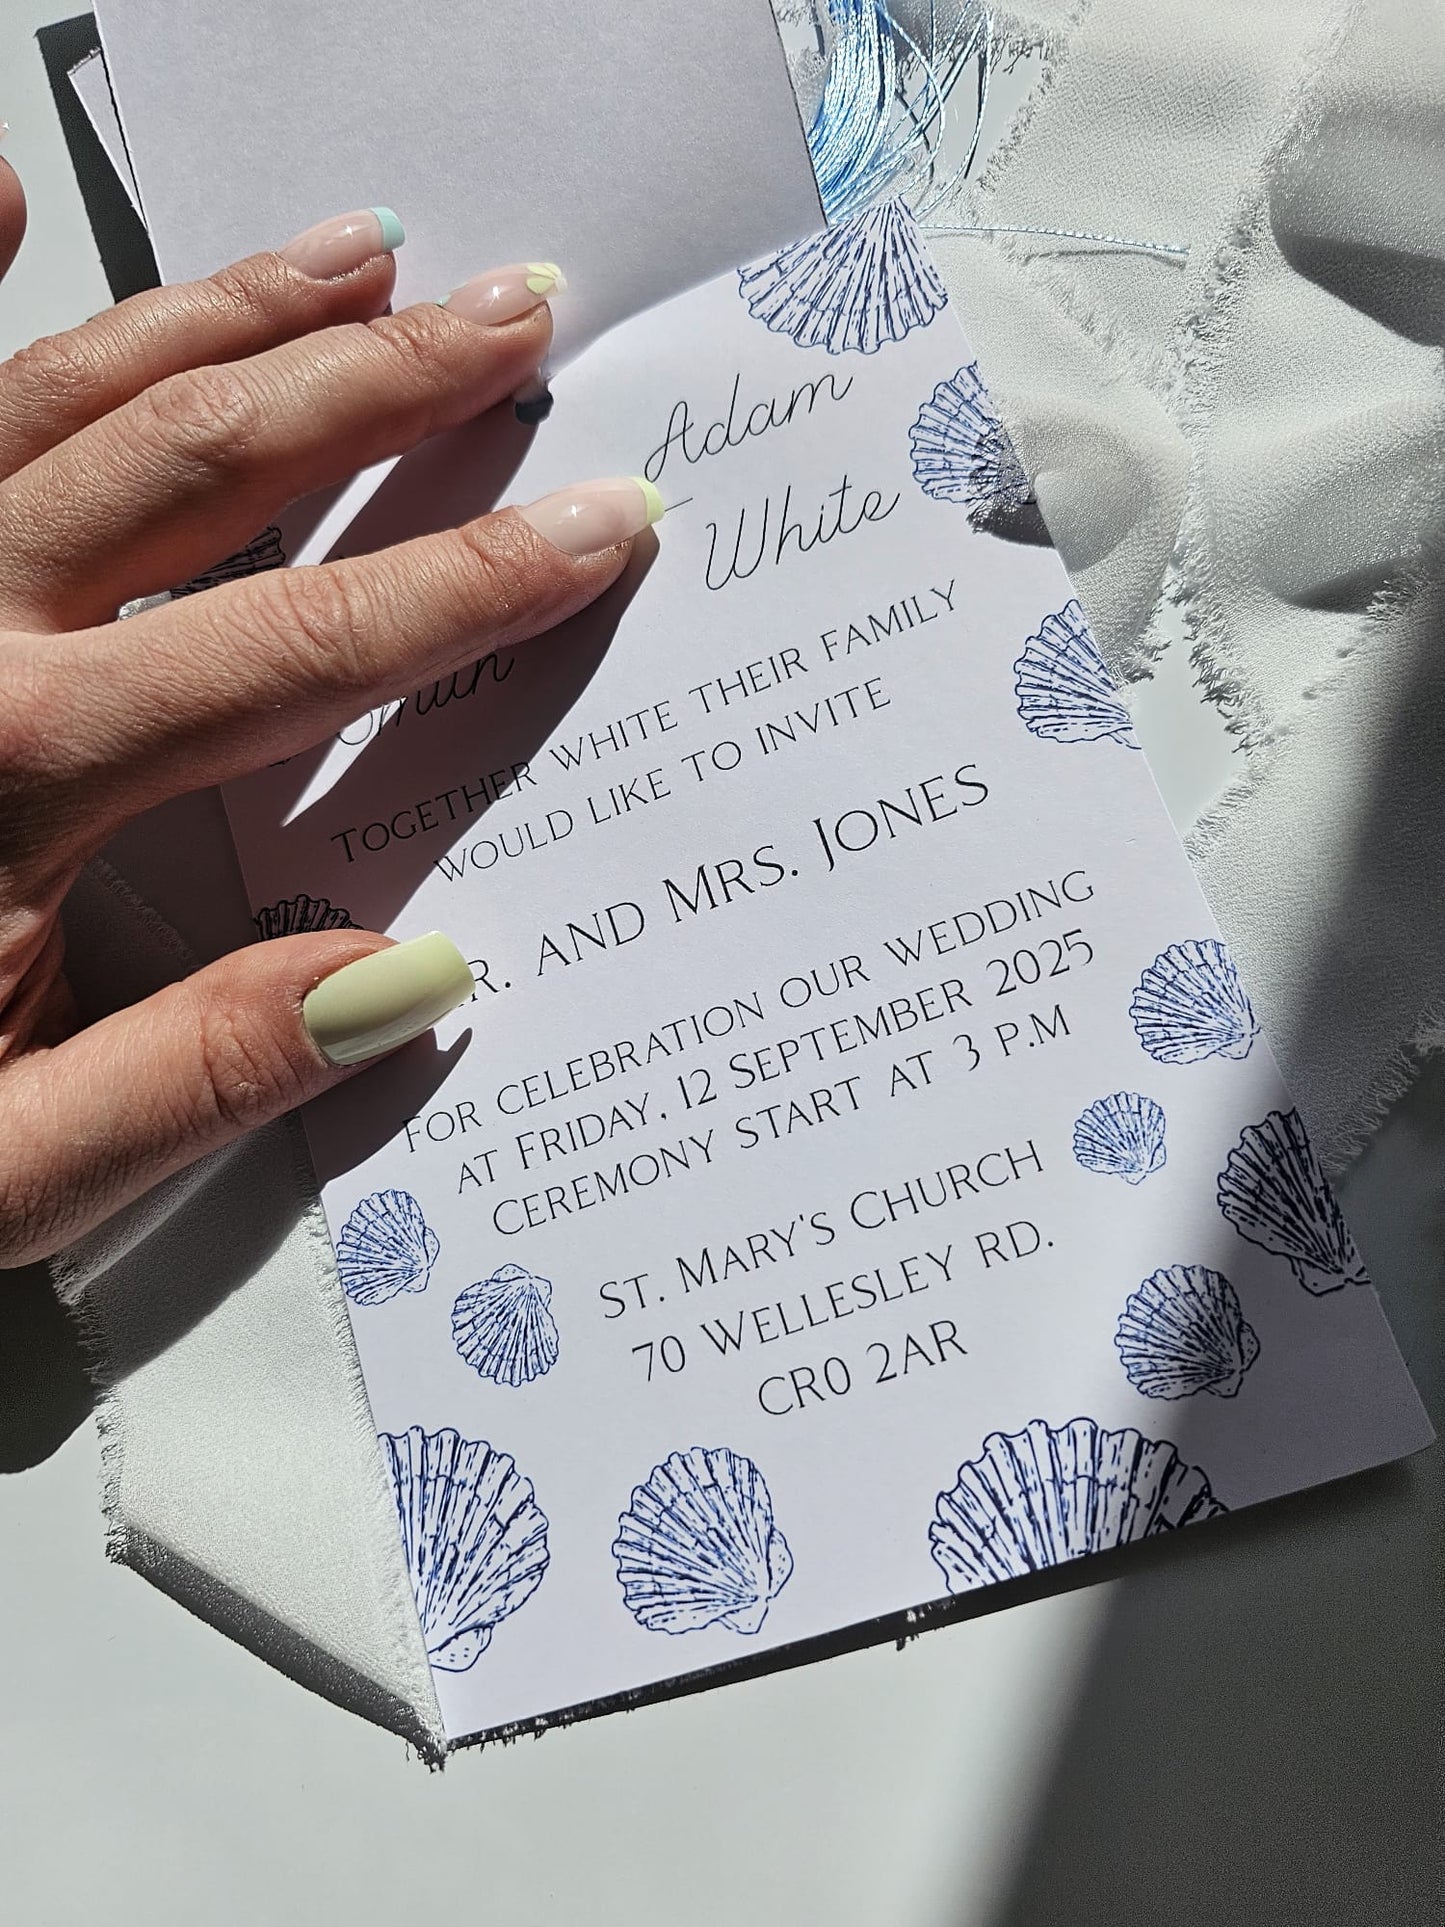 Adam
White
Smith
TOGETHER WHITE THEIR FAMILY
WOULD LIKE TO INVITE
AND MRS. JONES
FOR CELEBRATION OUR WEDDING
AT FRIDAY, 12 SEPTEMBER 2025
CEREMONY START AT 3 P.M
ST. MARY'S CHURCH
70 WELLESLEY RD.
CR0 2AR